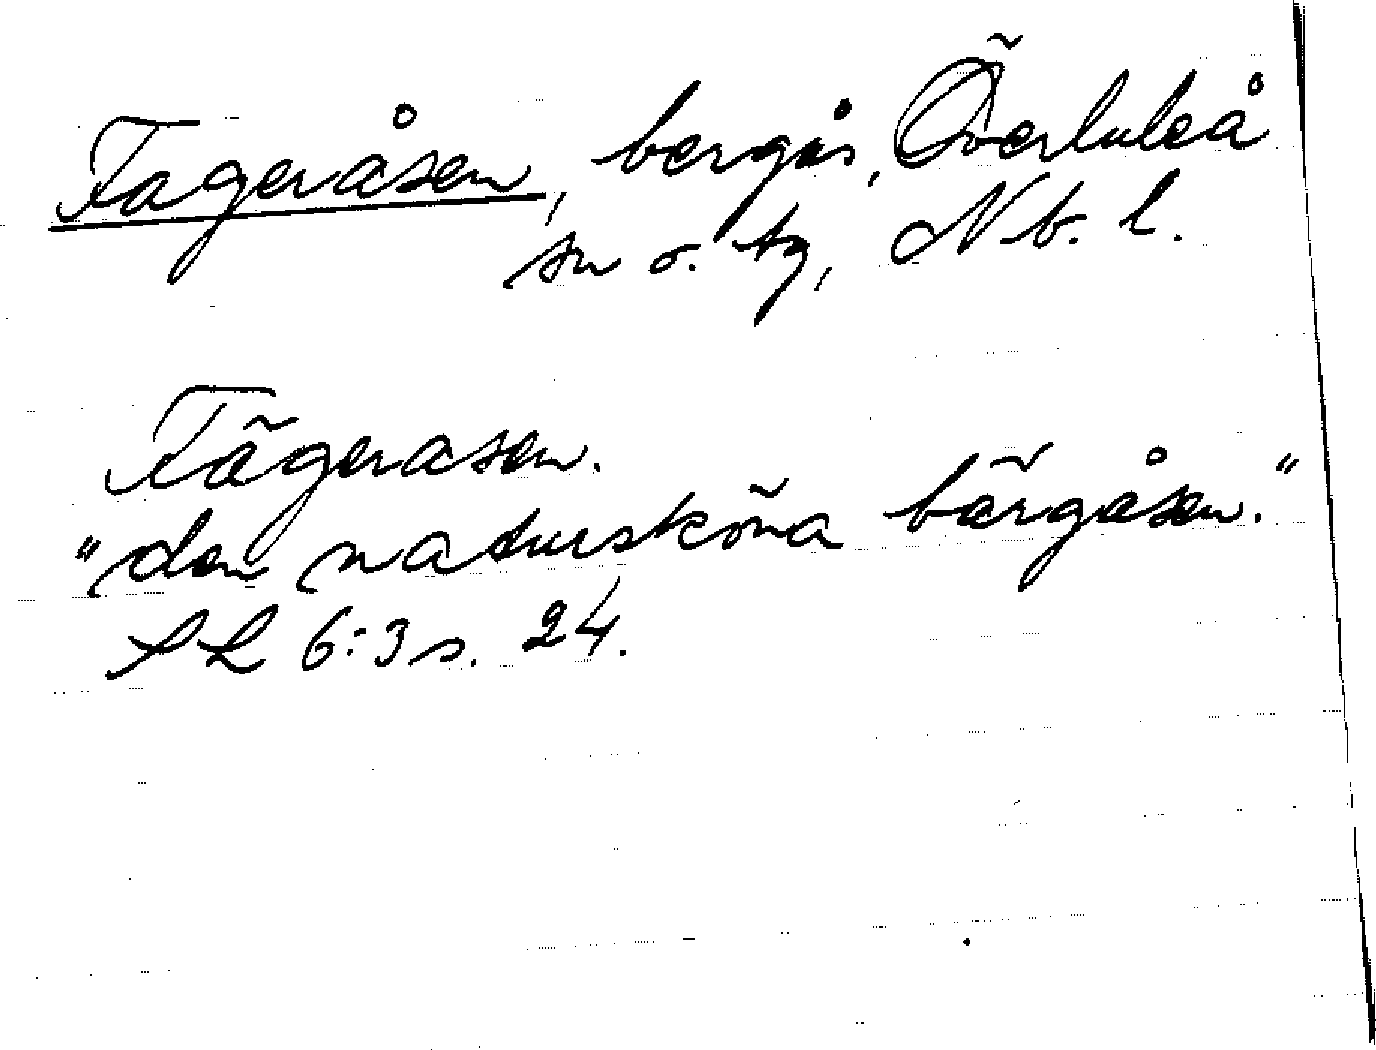 Fageråsen, bergås, Överluleå
sn o. tg, Nb. l.
Fägerasen.
"den natursköna bärgåsen."
SL 6:3 s. 24.